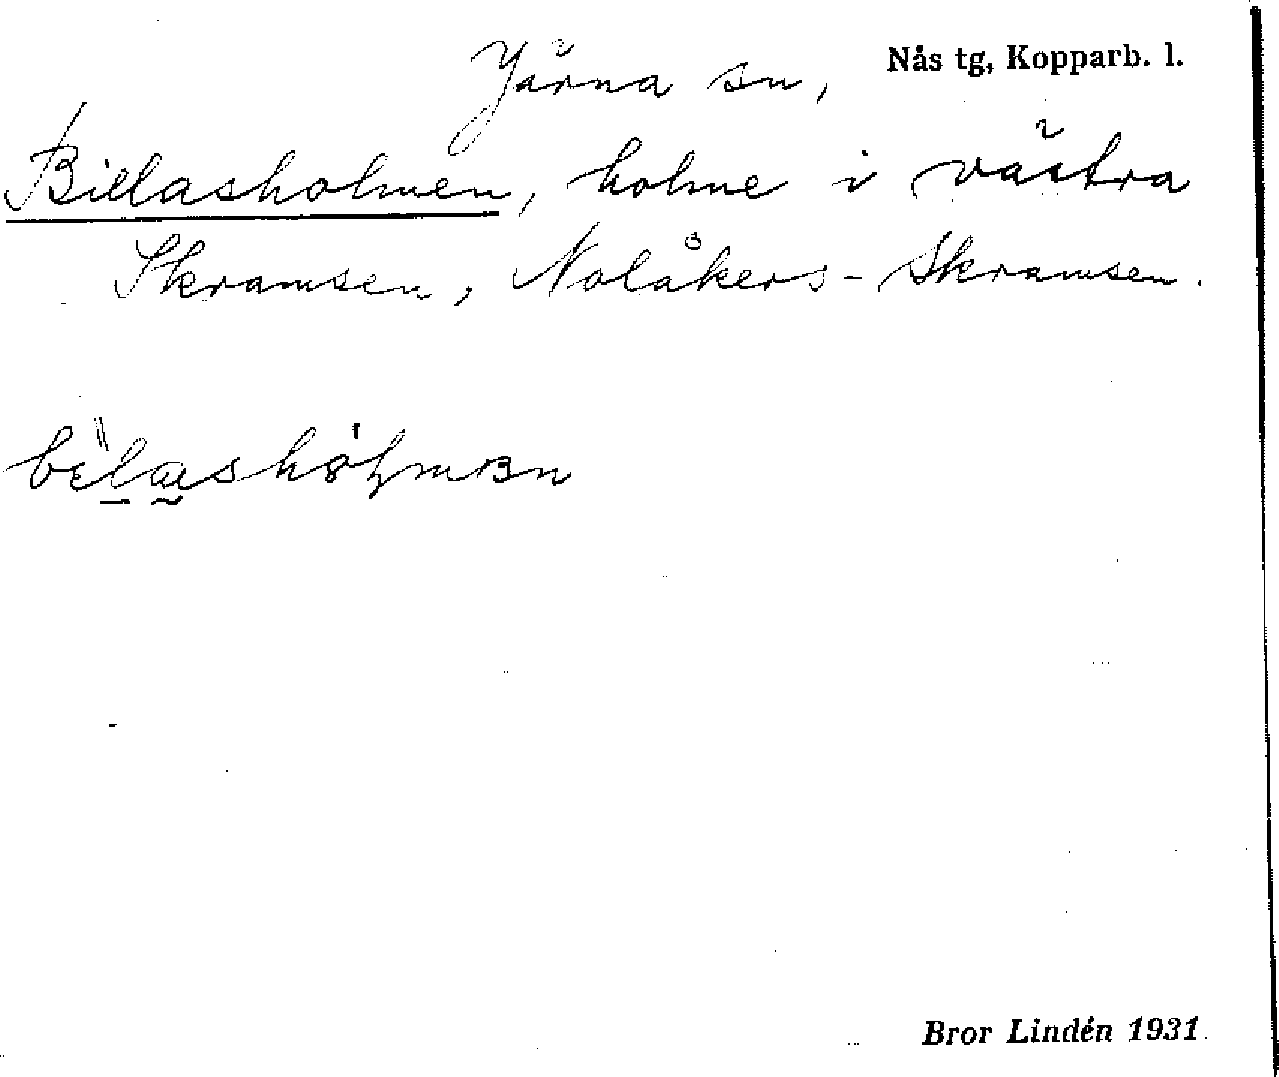 Järna sn, Nås tg, Kopparb. l.
Billasholmen, holme i västra
Skramsen, Nolåkers-Skramsen.
Bror Lindén 1931